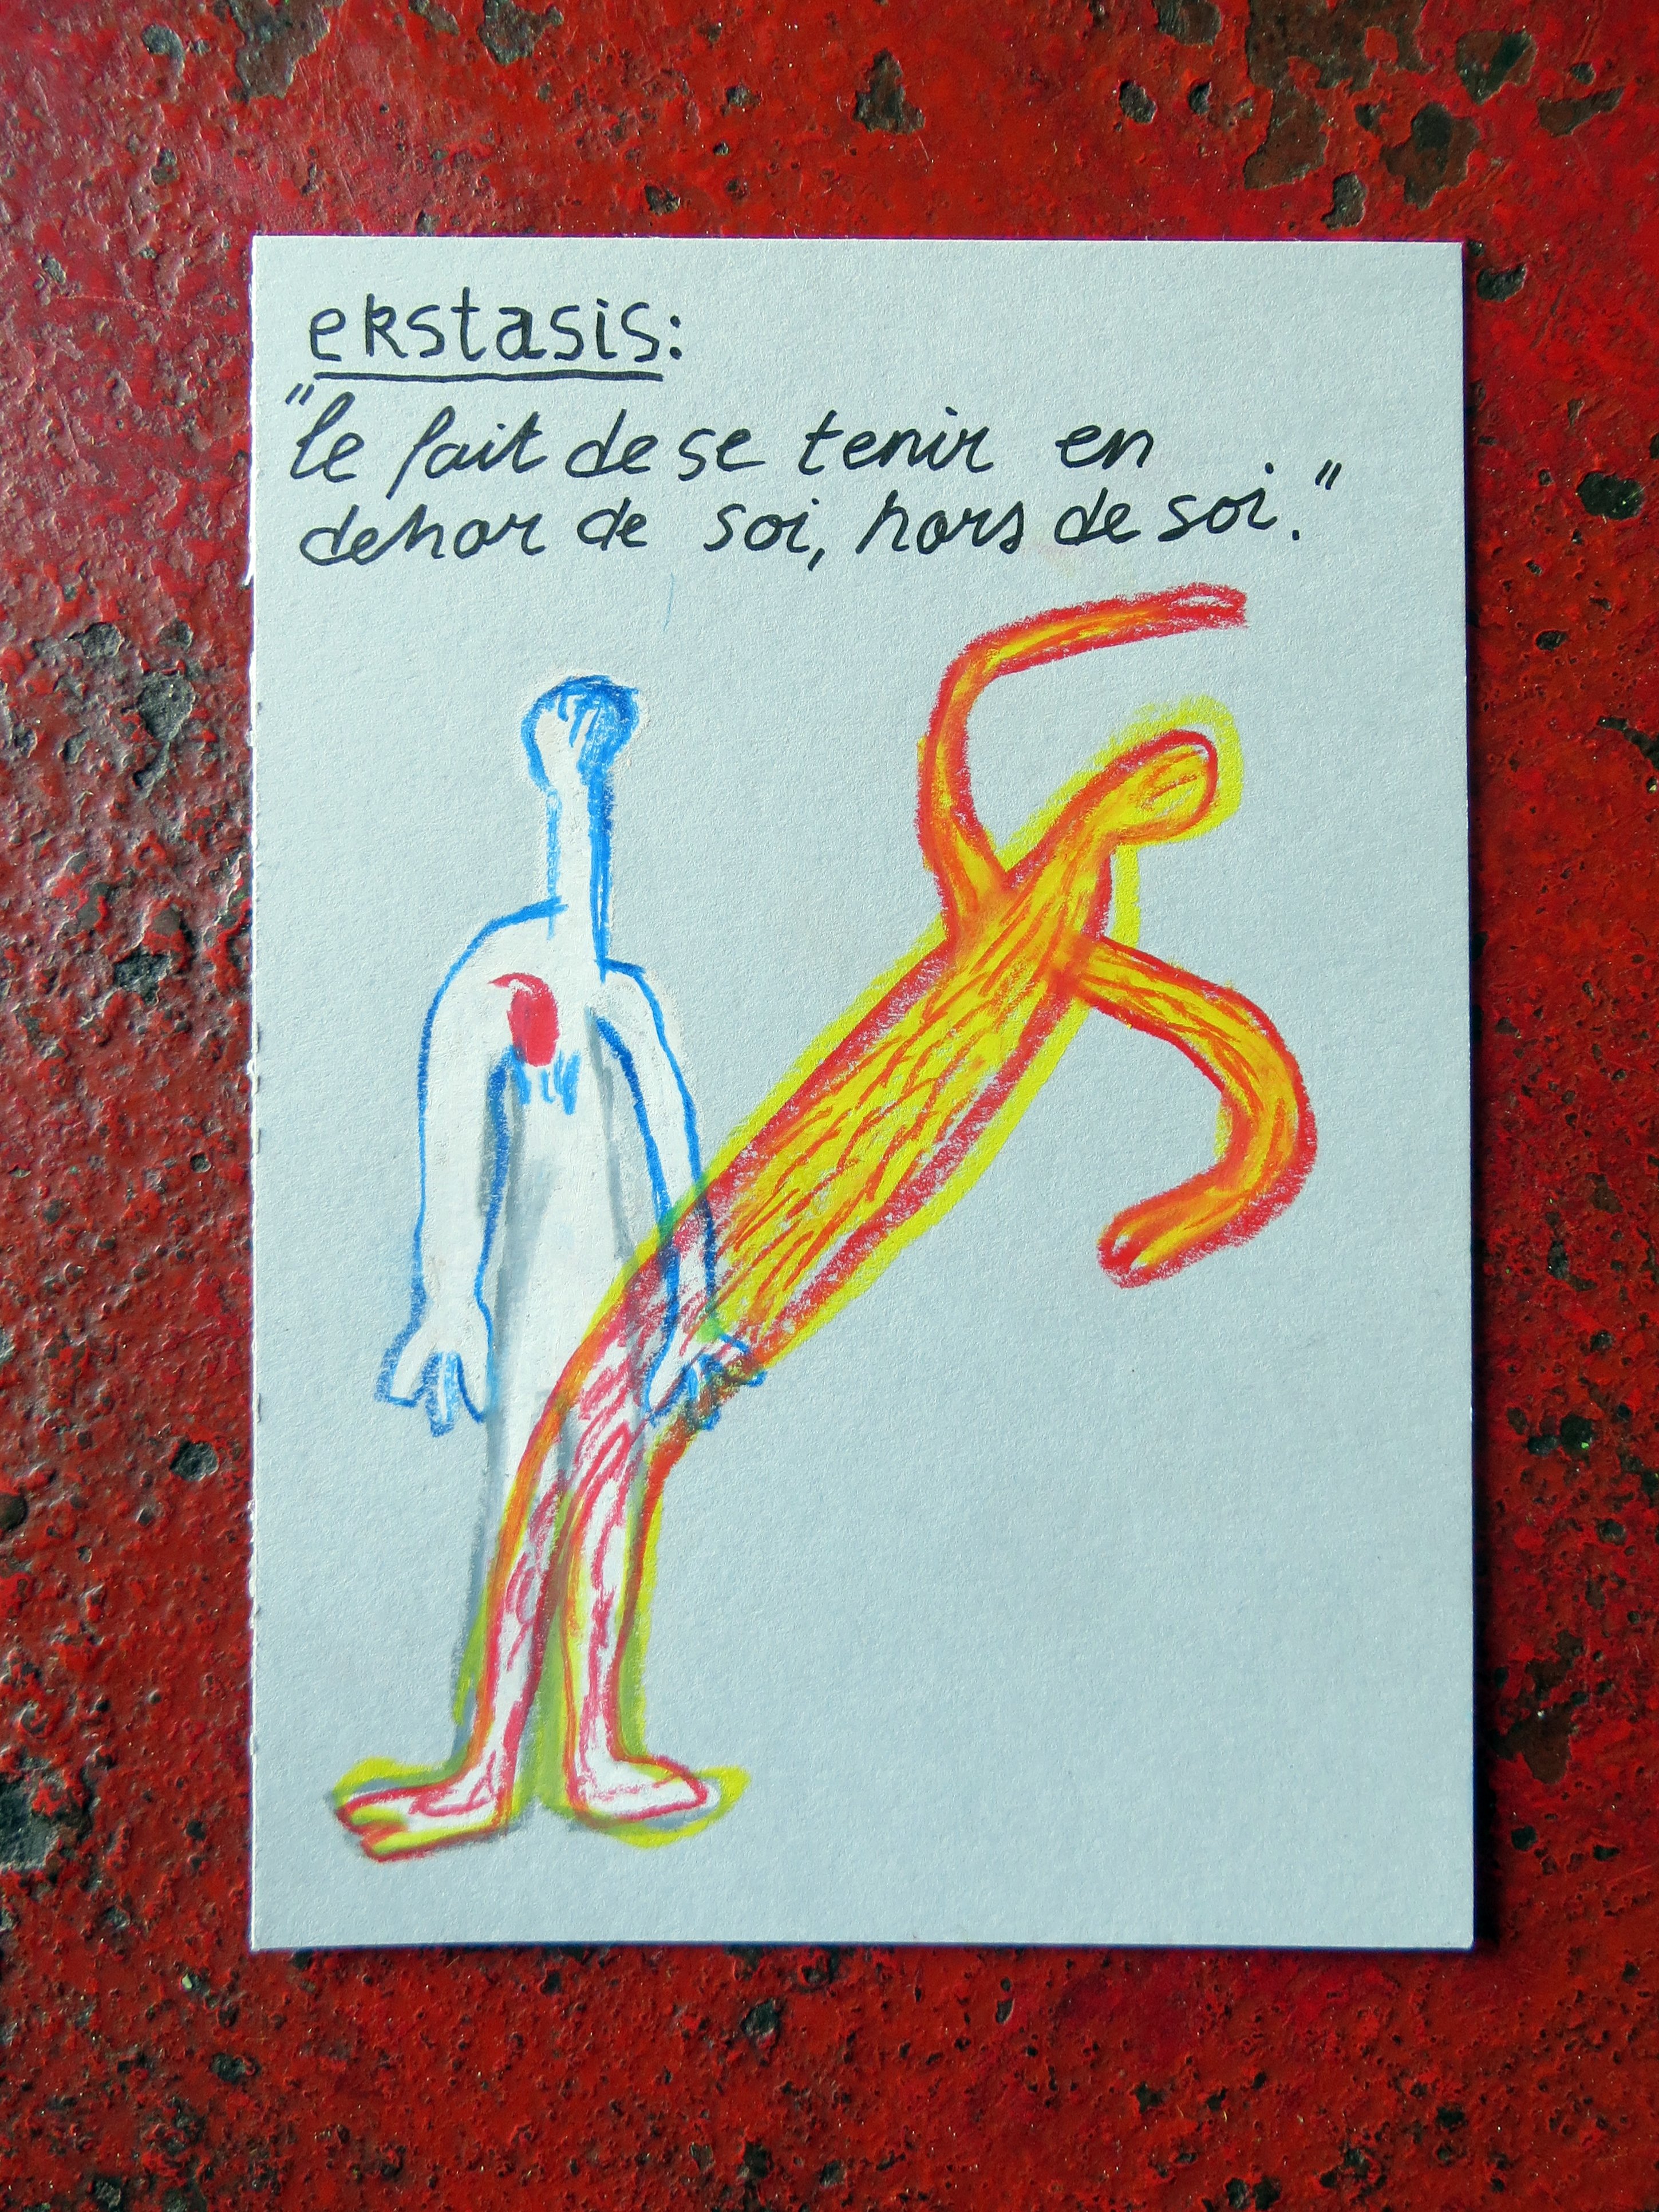 ekstasis:
"le fait de se tenir en
dehor de soi, hors de soi."